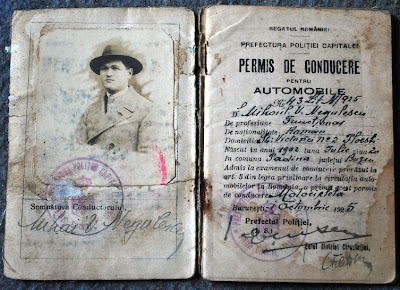 Semnătura Conductorului
Mihai V. Negulescu
REGATUL ROMÂNIEI
PREFECTURA POLIȚIEI CAPITALEI
PERMIS DE CONDUCERE
PENTRU
AUTOMOBILE
No 1925
D Mihail V. Negulescu
De profesiune Funcționar
De naționalitate Român
Domiciliat Victoriei No 2
Născut în anul 1902 luna Iulie ziua
In comuna județul Buzeu
Admis la examenul de conducere prevăzut la
art. 5 din legea privitoare la circulația auto-
mobilelor în România, a primit acest permis
de conducere
București 1 Octombrie 925
Prefectul Poliției,
Șeful Biroului Circulației,